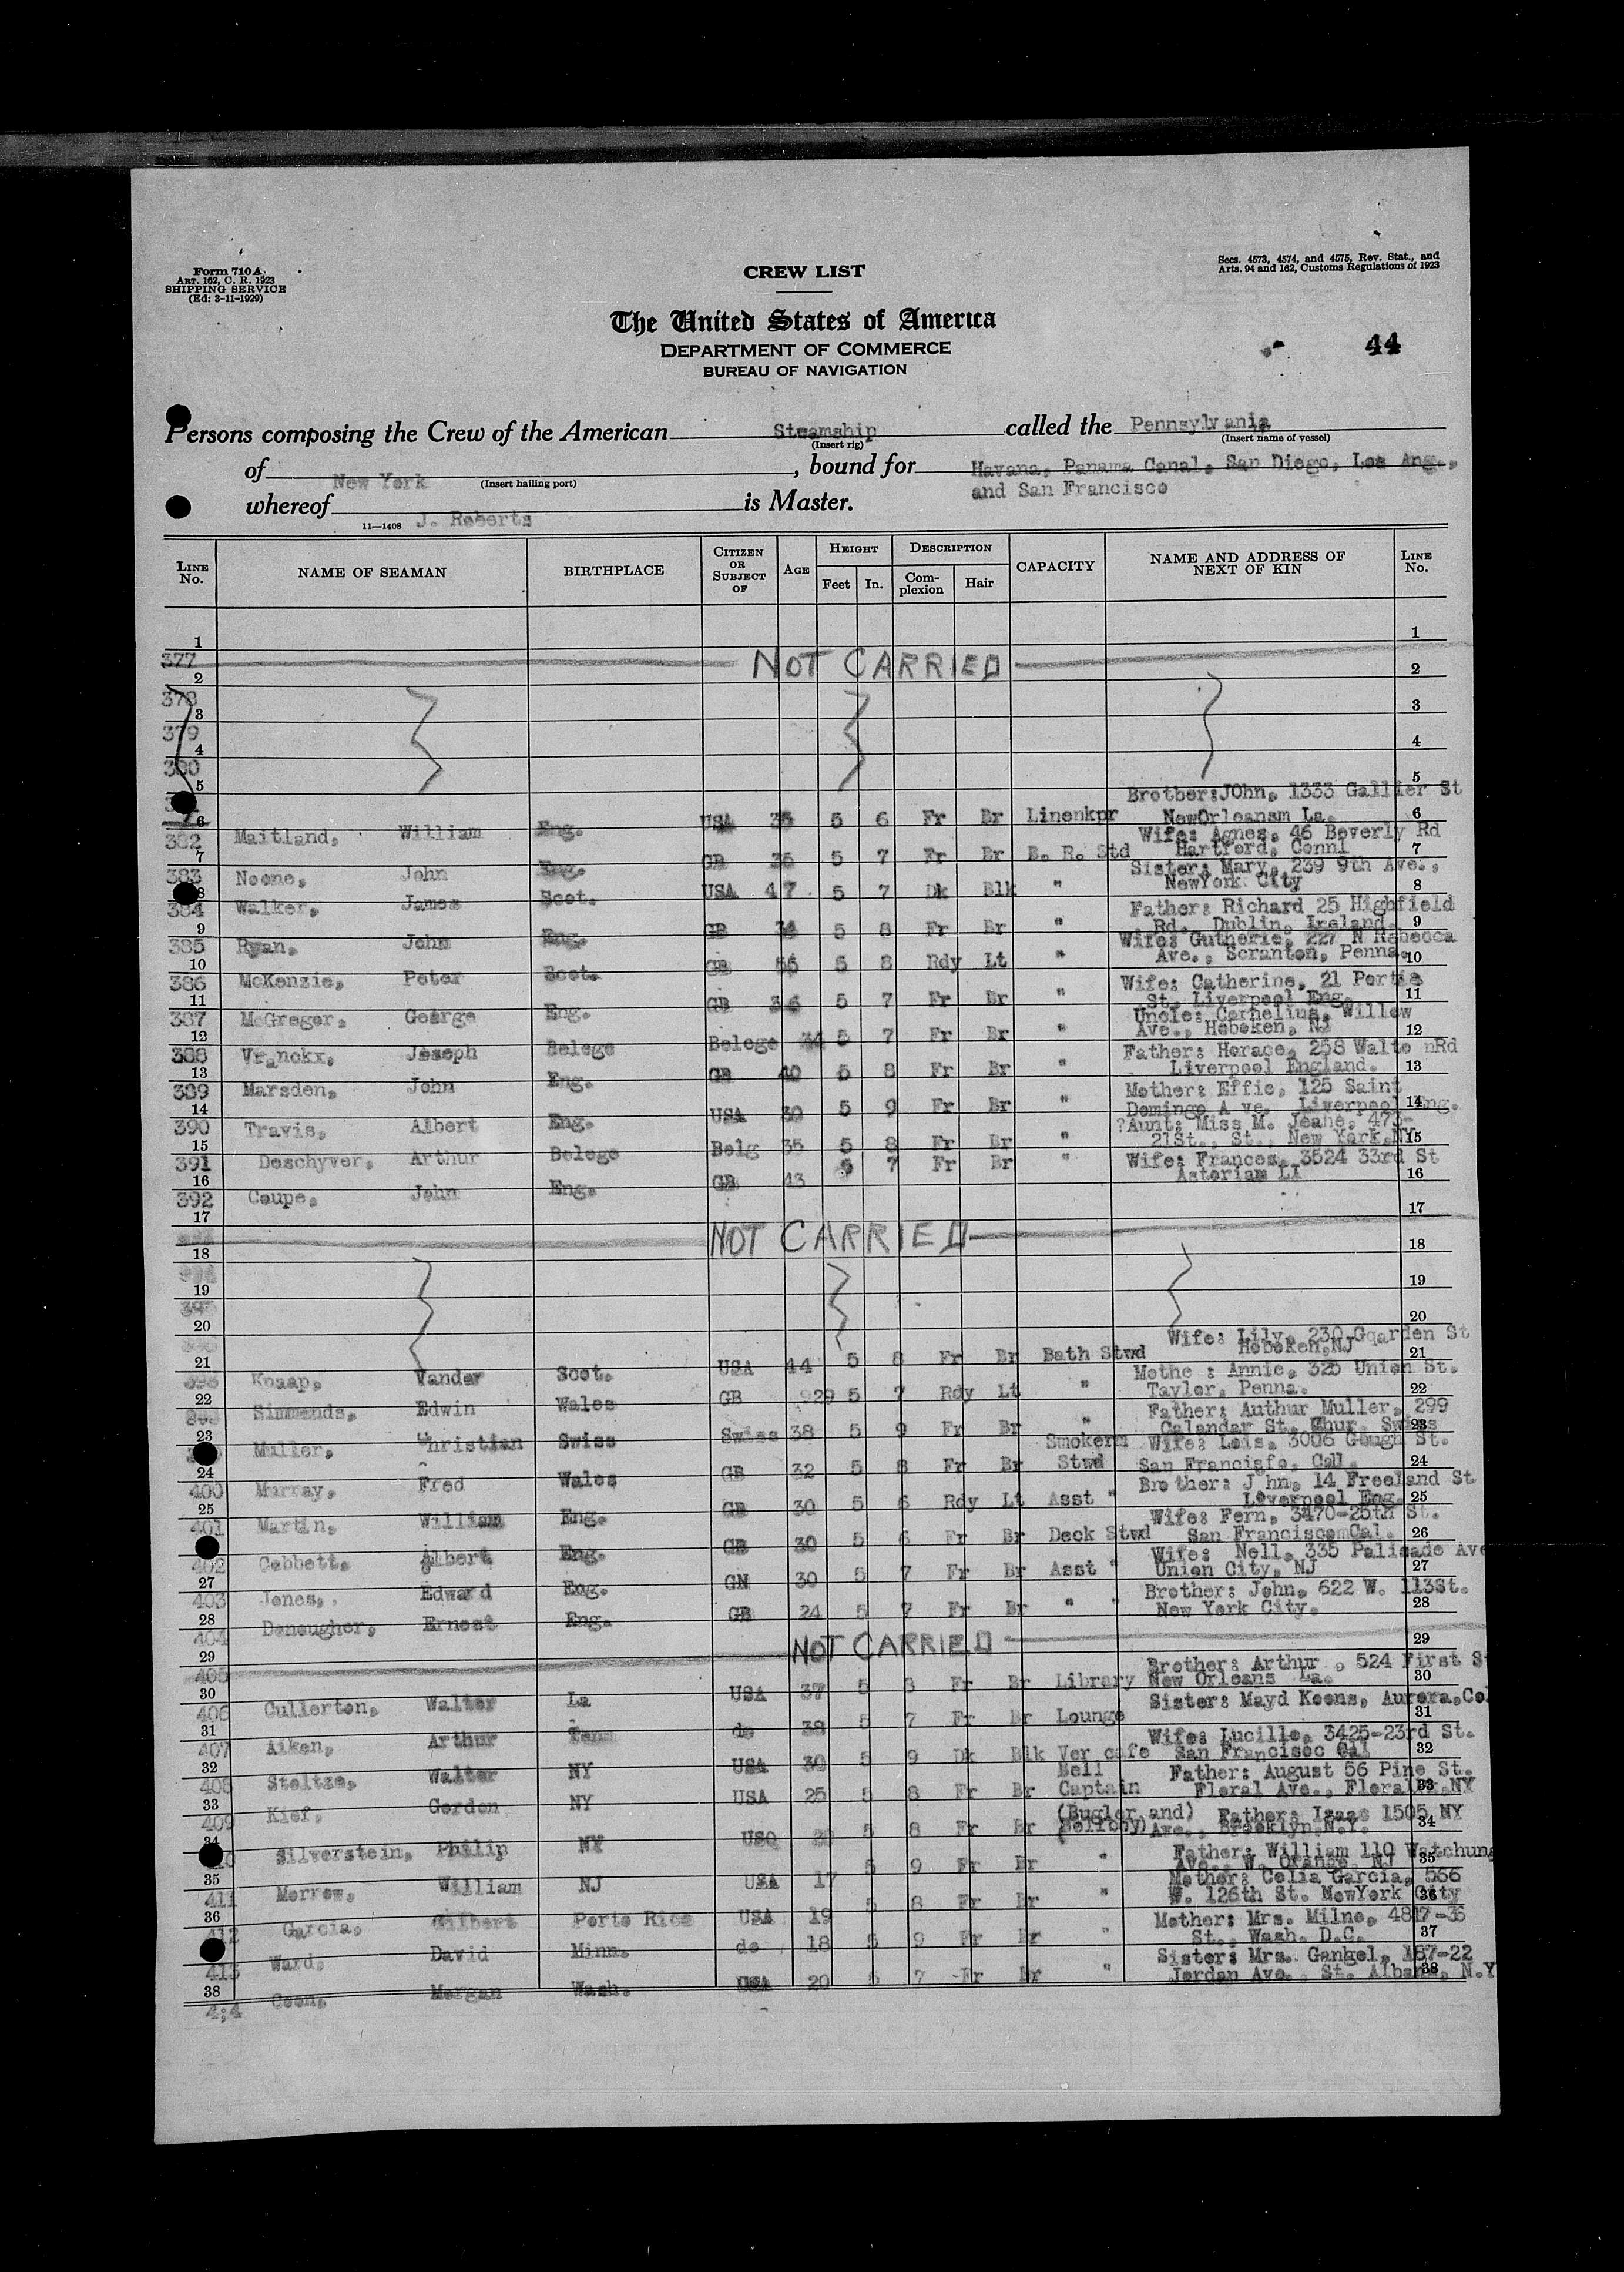 Form 710 A.
ART. 162, C. R. 1923
SHIPPING SERVICE
(Ed: 3-11-1929)
CREW LIST
Secs. 4573, 4574, and 4575, Rev. Stat., and
Arts. 94 and 162, Customs Regulations of 1923
The United States of America
DEPARTMENT OF COMMERCE
BUREAU OF NAVIGATION
44
Persons composing the Crew of the American Steamship called the Pennsylvania
(Insert rig) (Insert name of vessel)
of New York, bound for Havana, Panama Canal, San Diego, Los Ang.,
(Insert hailing port) and San Francisco
whereof J. Roberts is Master.
11—1408
LINE No. NAME OF SEAMAN BIRTHPLACE CITIZEN OR SUBJECT OF AGE HEIGHT Feet In. DESCRIPTION Complexion Hair CAPACITY NAME AND ADDRESS OF NEXT OF KIN LINE No.
1 1
377 NOT CARRIED
2 2
378
3 3
379
4 4
380
5 5
Brother:JOhn, 1333 Gallier St
6 Maitland, William Eng. USA 35 5 6 Fr Br Linenkpr NewOrleansm La. 6
382 Wife: Agnes, 46 Beverly Rd
7 Noone, John Eng. GB 35 5 7 Fr Br B. R. Std Hartford, Connl 7
383 Sister: Mary, 239 9th Ave.,
8 Walker, James Scot. USA 47 5 7 Dk Blk " NewYork City 8
384 Father: Richard 25 Highfield
9 Ryan, John Eng. GB 34 5 8 Fr Br " Rd. Dublin, Ireland. 9
385 Wife: Gutherie, 227 N Rebecca
10 McKenzie, Peter Scot. GB 55 5 8 Rdy Lt " Ave., Scranton, Penna. 10
386 Wife: Catherine, 21 Portie
11 McGregor, George Eng. GB 36 5 7 Fr Br " St. Liverpool Eng. 11
387 Uncle: Cornelius, Willow
12 Vranckx, Joseph Belege Belege 34 5 7 Fr Br " Ave., Hoboken, NJ 12
388 Father: Horace, 258 Walto nRd
13 Marsden, John Eng. GB 40 5 8 Fr Br " Liverpool England. 13
389 Mother: Effie, 125 Saint
14 Travis, Albert Eng. USA 30 5 9 Fr Br " Domingo A ve. Liverpool Eng. 14
390 ?Aunt: Miss M. Jeane, 473-
15 Deschyver, Arthur Belege Belg 35 5 8 Fr Br " 21St., St., New York,NY 15
391 Wife: Frances, 3524 33rd St
16 Coupe, John Eng. GB 43 5 7 Fr Br " Astoriam LI 16
392
17 17
NOT CARRIED
18 18
19 19
20 20
Wife: Lily, 230 Gqarden St
21 Knaap, Vander Scot. USA 44 5 8 Fr Br Bath Stwd Hoboken,NJ 21
Mothe : Annie, 325 Union St.
22 Simmonds, Edwin Wales GB 929 5 7 Rdy Lt " Taylor, Penna. 22
Father: Authur Muller, 299
23 Muller, Christian Swiss Swiss 38 5 9 Fr Br " Calandar St. Chur, Swiss 23
Smokerm Wife: Lois, 3006 Gough St.
24 Murray, Fred Wales GB 32 5 8 Fr Br Stwd San Francisfo, Cal. 24
400 Brother: J hn, 14 Freeland St
25 Martin, William Eng. GB 30 5 6 Rdy Lt Asst " Liverpool Eng. 25
401 Wife: Fern, 3470-25th St.
26 Cebbett, Albert Eng. GB 30 5 6 Fr Br Deck Stwd San FranciscomCal. 26
402 Wife: Nell, 335 Palisade Ave
27 Jones, Edward Eng. GN 30 5 7 Fr Br Asst " Union City, NJ 27
403 Brother: John, 622 W. 113St.
28 Doneugher, Ernest Eng. GB 24 5 7 Fr Br " " New York City. 28
404 NOT CARRIED
29 29
405 Brother: Arthur , 524 First St
30 Cullerton, Walter La USA 37 5 8 Fr Br Library New Orleans La. 30
406 Sister: Mayd Koons, Aurora,Col
31 Aiken, Arthur Tenn do 38 5 7 Fr Br Lounge 31
407 Wife: Lucille, 3425-23rd St.
32 Stoltze, Walter NY USA 30 5 9 Dk Blk Ver cafe San Francisoc Cal 32
408 Bell Father: August 56 Pine St.
33 Kief, Gordon NY USA 25 5 8 Fr Br Captain Floral Ave., Floral Pk.NY 33
409 (Bugler and) Father: Isaac 1505 NY
34 Silverstein, Philip NY USO 5 8 Fr Br (Bellboy) Ave., Brooklyn.N.Y. 34
Father: William 110 Watchung
35 Morrow, William NJ USA 17 5 9 Fr Br " Ave. W. Orange, NJ 35
411 Mother: Celia Garcia, 566
36 Garcia, Gilbert Porto Rico USA 19 5 8 Fr Br " W. 126th St. NewYork City 36
412 Mother: Mrs. Milne, 4817-36
37 Ward, David Minn. do 18 5 9 Fr Br " St., Wash. D.C. 37
413 Sister: Mrs. Gangel, 187-22
38 Coen, Morgan Wash. USA 20 5 7 Fr Br " Jordan Ave., St. Albans, N.Y 38
4;4